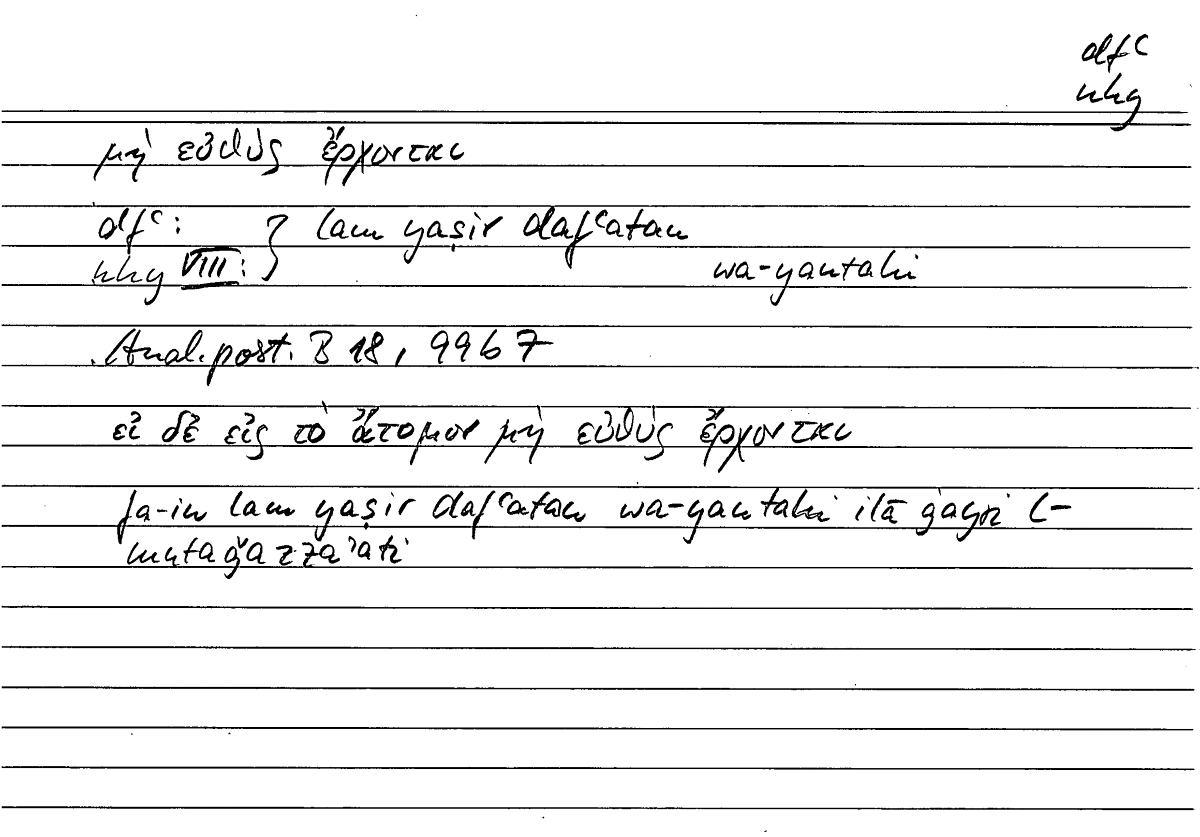 dfʿ
nhy
μὴ εὐθὺς ἔρχονται
dfʿ: } lam yaṣir dafʿatan
nhy VIII: wa-yantahi
Anal. post. B 18, 99b7
εἰ δὲ εἰς τὸ ἄτομον μὴ εὐθὺς ἔρχονται
fa-in lam yaṣir dafʿatan wa-yantahi ilā ġayri l-
mutaǧazzaʾati